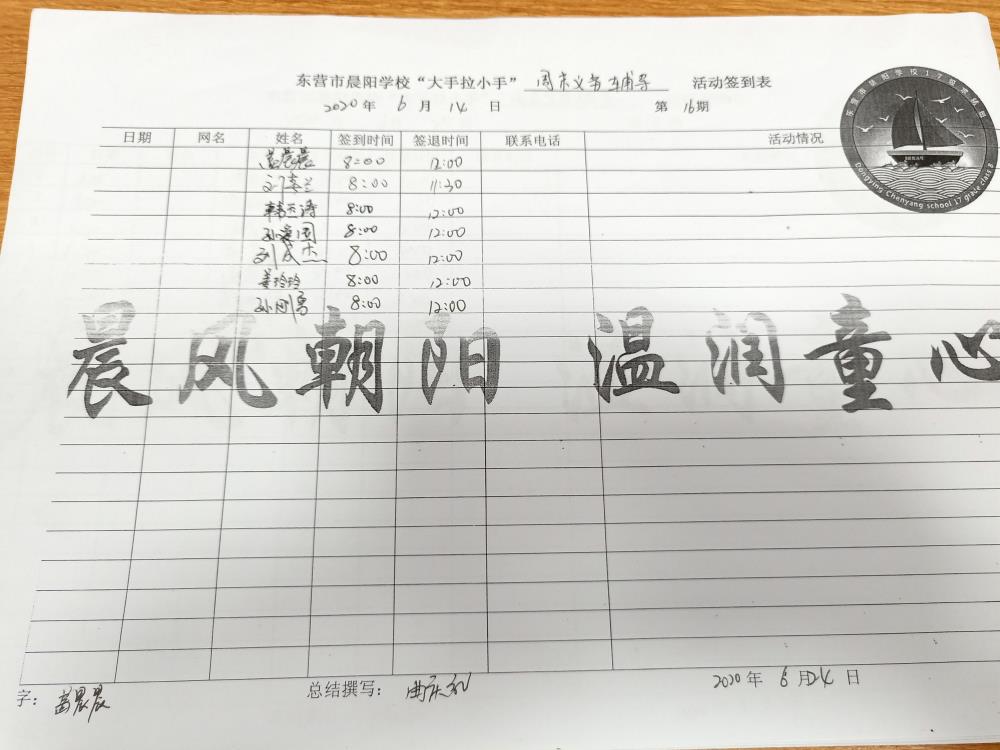 东营市晨阳学校“大手拉小手” 周末义务辅导 活动签到表
2020年 6 月 14 日 第 16期
日期 网名 姓名 签到时间 签退时间 联系电话 活动情况
苗晨晨 8:00 12:00
刘春兰 8:00 11:30
韩玉涛 8:00 12:00
孙爱国 8:00 12:00
刘成杰 8:00 12:00
姜玲玲 8:00 12:00
孙刚勇 8:00 12:00
晨风朝阳 温润童心
字: 苗晨晨 总结撰写: 曲庆礼 2020 年 6 月 14 日
东营市晨阳学校17级八班
Dongying Chenyang school 17 grade class 8